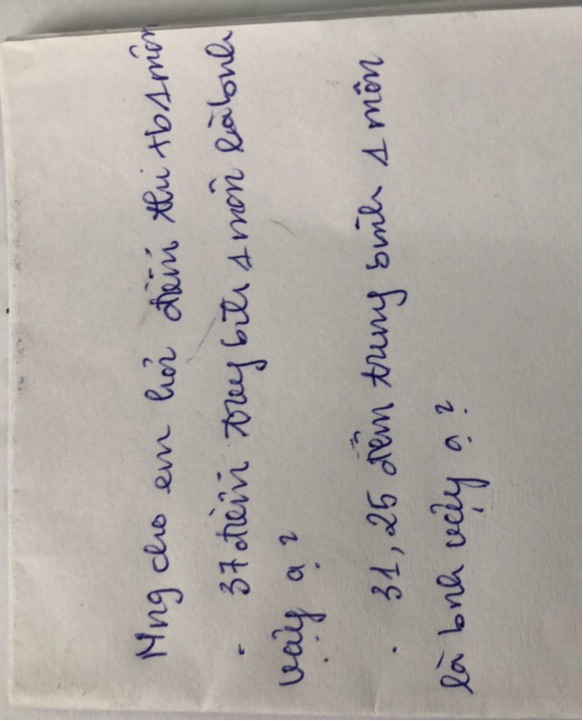 Mng cho em hỏi điểm thi tb 1 môn
- 37 điểm trung bình 1 môn là bnh
vậy ạ?
. 31,25 điểm trung bình 1 môn
là bnh vậy ạ?